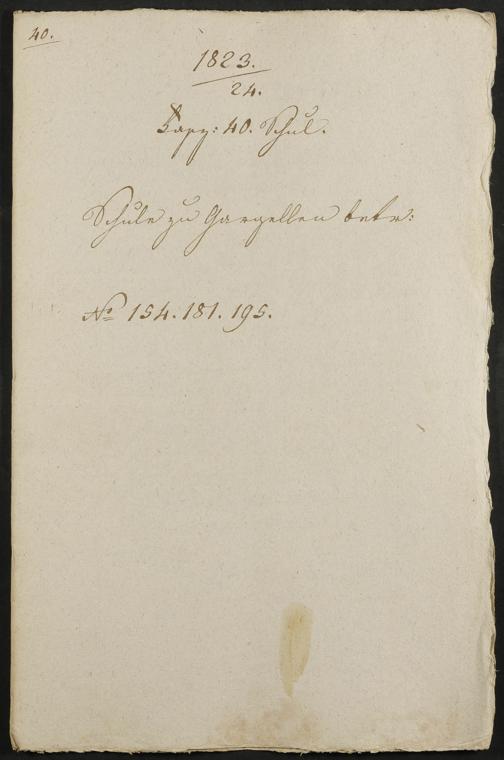 40.
1823.
24.
Fasz: 40. Schul.
Schule zu Gargellen betr:
No 154. 181. 195.